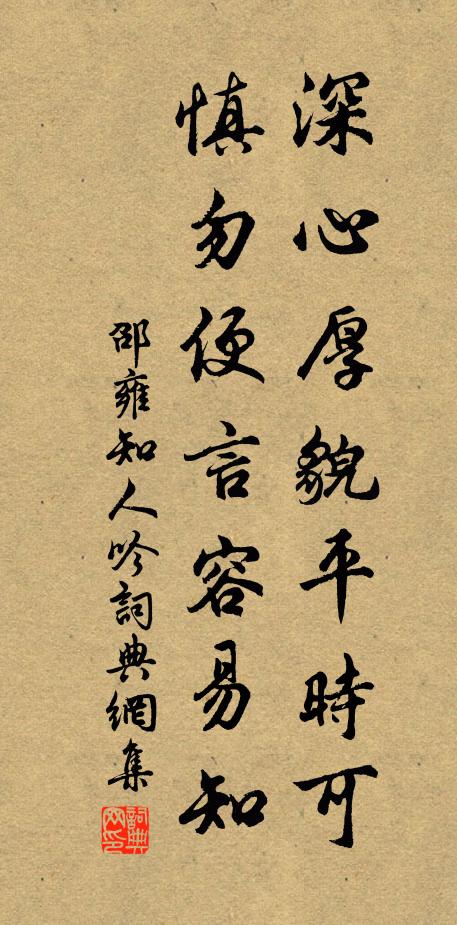 深心厚貌平時可
慎勿便言容易知
邵雍知人吟詞典網集
詞典网印